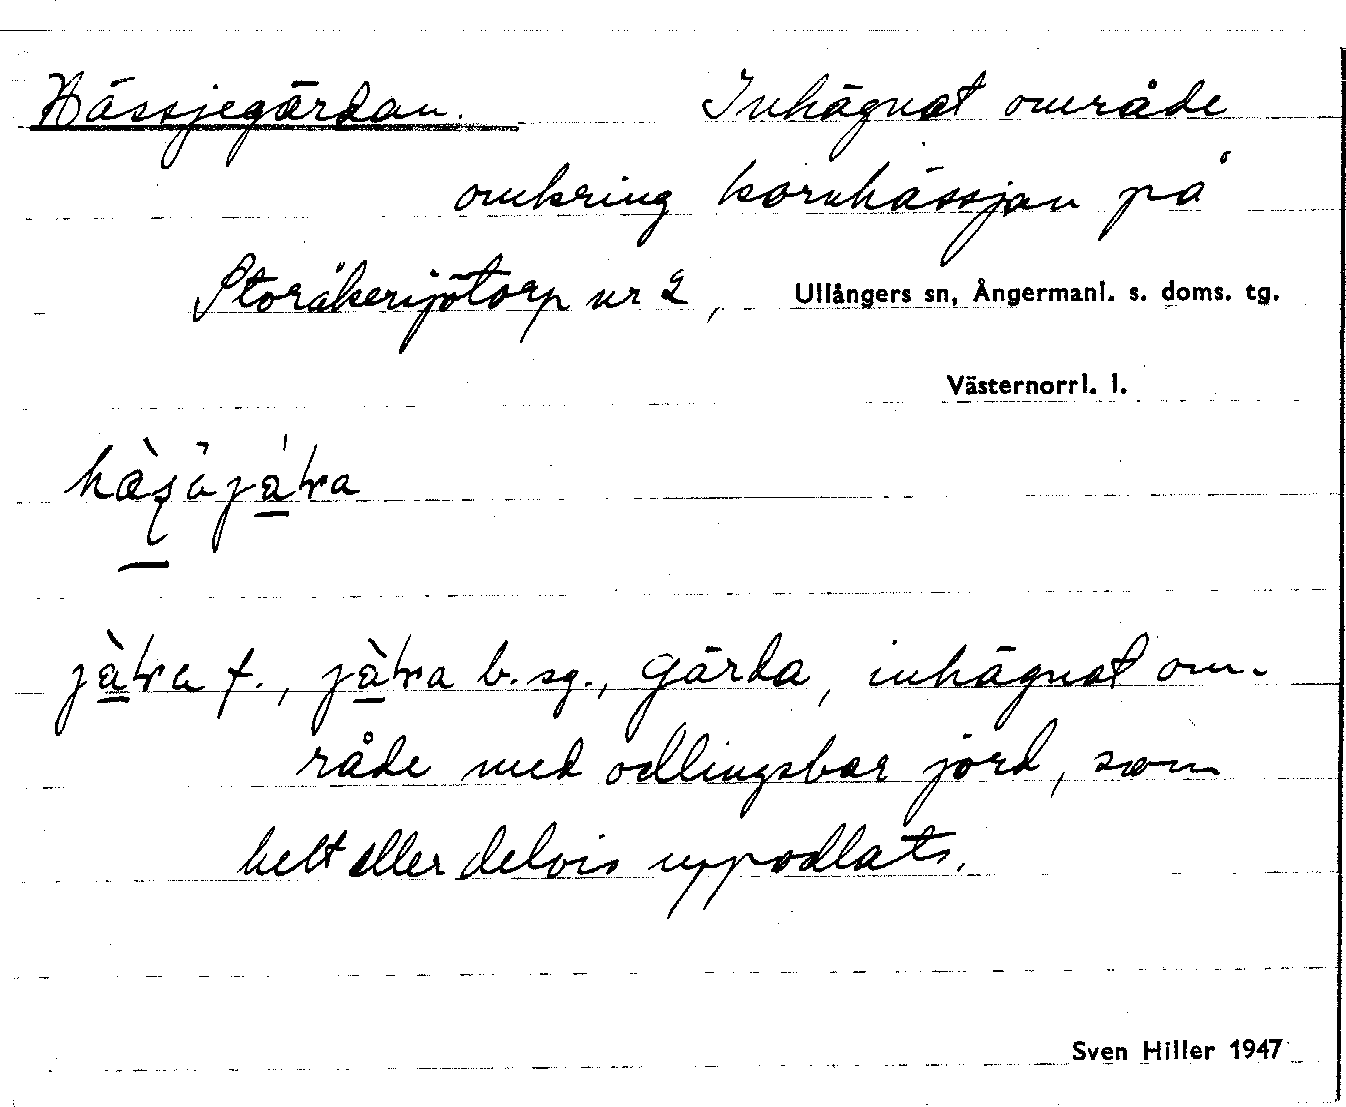 Hässjegärdan. Inhägnat område
omkring kornhässjan på
nr 2, Ullångers sn, Ångermanl. s. doms. tg.
Västernorrl. l.
f., b. sg., gärda, inhägnat om-
råde med odlingsbar jord, som
helt eller delvis uppodlats.
Sven Hiller 1947